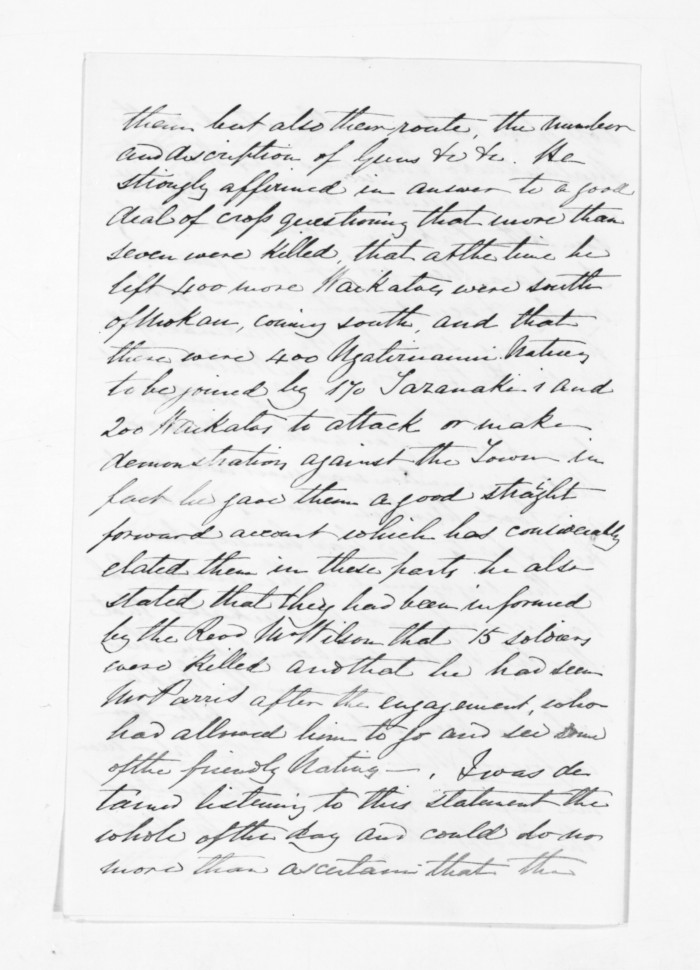 them but also their route, the number
and discription of Guns &c &c. He
strongly affirmed in answer to a good
deal of cross questioning that more than
seven were killed, that at the time he
left 400 more Waikatos were south
of Mokau, coming south, and that
there were 400 Ngatiruanui Natives
to be joined by 170 Taranaki's and
200 Waikatos to attack or make
demonstration against the Town in
fact he gave them a good straight
forward account which has considerably
elated them in these parts, he also
stated that they had been informed
by the Revd Mr Wilson that 15 soldiers
were killed and that he had seen
Mr Parris after the engagement, who
had allowed him to go and see some
of the friendly Natives —. I was de
tained listening to this statement the
whole of the day and could do no
more than ascertain that the